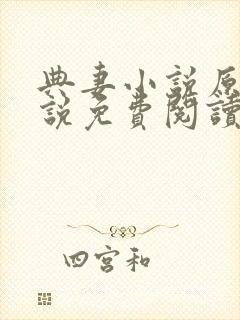 典妻小説原
説免費閱讀
四宮和